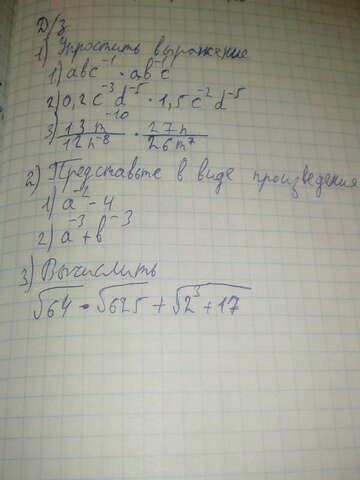 Д/з.
1) Упростить выражение
1) abc⁻¹ · ab⁻¹c
2) 0,2c⁻³d⁻⁵ · 1,5c⁻²d⁻⁵
3) 13m⁻¹⁰/12n⁻⁸ · 27n/26m⁷
2) Представьте в виде произведения
1) a⁻⁴ - 4
2) a⁻³ + b⁻³
3) Вычислить
√64 · √625 + √2³ + 17